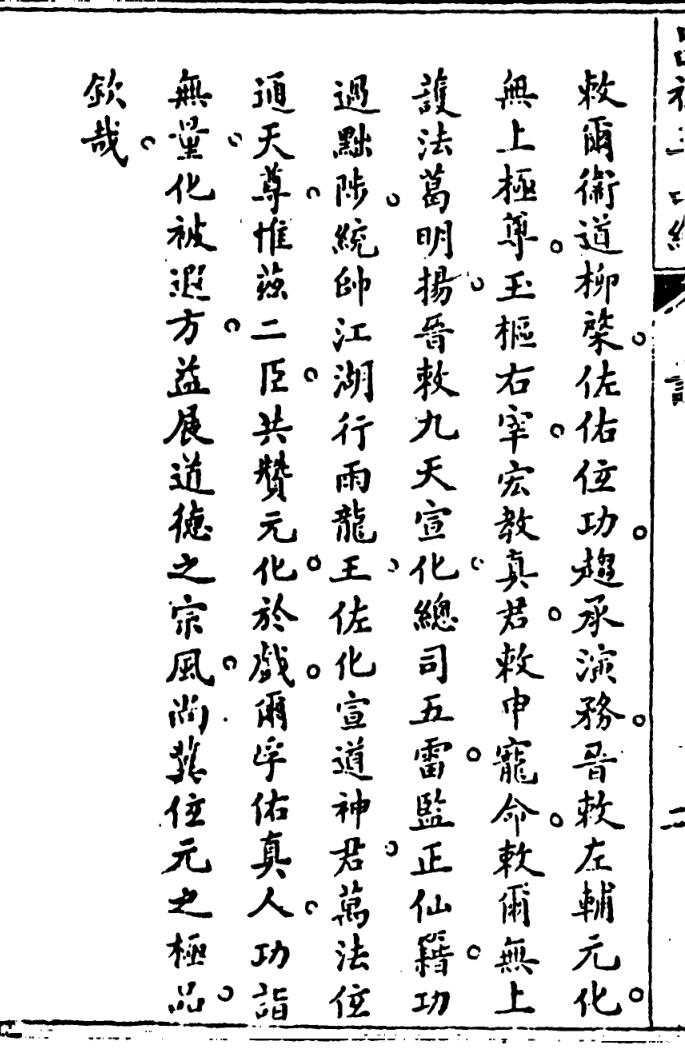 敕爾衛道柳棨佐佑位功趨承演務晋敕左輔元化
無上極尊玉樞右宰宏教真君敕申寵命敕爾無上
護法葛明揚晉敕九天宣化總司五雷監正仙籍功
過黜陟統帥江湖行雨龍王佐化宣道神君萬法位
通天尊惟茲二臣共贊元化於戲爾孚佑真人功詣
無量化被遐方益展道德之宗風尚位元之極品
欽哉